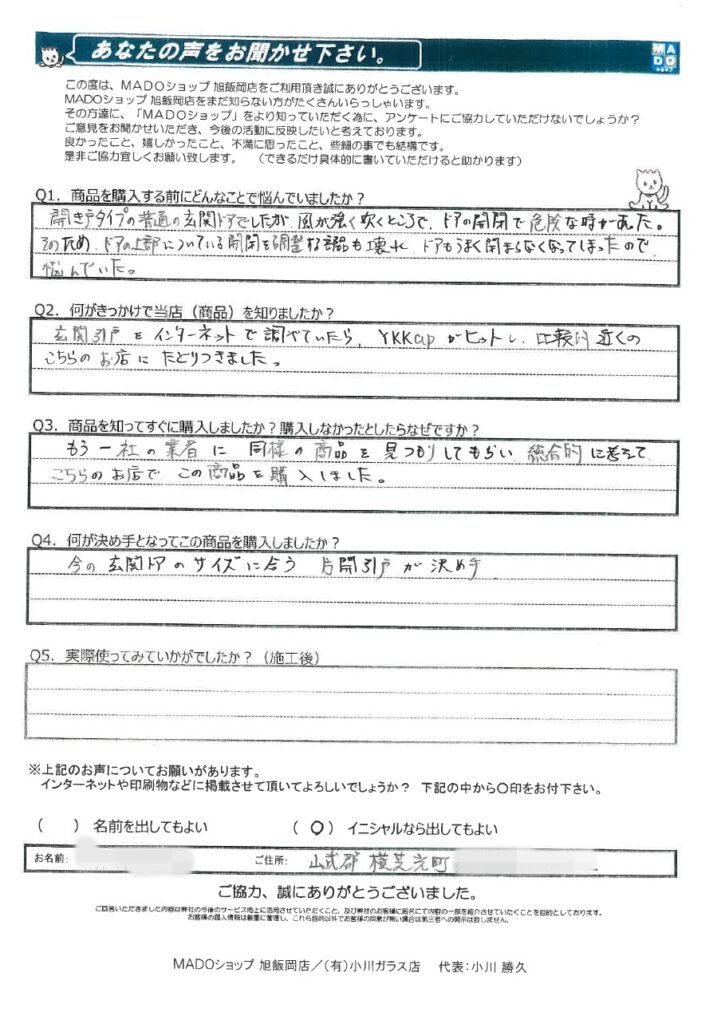 あなたの声をお聞かせ下さい。
MADO
ショップ
この度は、MADOショップ 旭飯岡店をご利用頂き誠にありがとうございます。
MADOショップ 旭飯岡店をまだ知らない方がたくさんいらっしゃいます。
その方達に、「MADOショップ」をより知っていただく為に、アンケートにご協力していただけないでしょうか？
ご意見をお聞かせいただき、今後の活動に反映したいと考えております。
良かったこと、嬉しかったこと、不満に思ったこと、些細の事でも結構です。
是非ご協力宜しくお願い致します。 （できるだけ具体的に書いていただけると助かります）
Q1．商品を購入する前にどんなことで悩んでいましたか？
開き戸タイプの普通の玄関ドアでしたが、風が強く吹くところで、ドアの開閉で危険な時があった。
そのため、ドアの上部についている開閉を調整する部品も壊れ ドアもうまく閉まらなくなってしまったので
悩んでいた。
Q2．何がきっかけで当店（商品）を知りましたか？
玄関引戸をインターネットで調べていたら、YKKapがヒットし、比較的近くの
こちらのお店にたどりつきました。
Q3．商品を知ってすぐに購入しましたか？購入しなかったとしたらなぜですか？
もう一社の業者に同様の商品を見つもりしてもらい 総合的に考えて
こちらのお店でこの商品を購入しました。
Q4．何が決め手となってこの商品を購入しましたか？
今の玄関ドアのサイズに合う 片開引戸が決め手
Q5．実際使ってみていかがでしたか？（施工後）
※上記のお声についてお願いがあります。
インターネットや印刷物などに掲載させて頂いてよろしいでしょうか？ 下記の中から〇印をお付下さい。
（ ）名前を出してもよい （ 〇 ）イニシャルなら出してもよい
お名前： ご住所： 山武郡 横芝光町
ご協力、誠にありがとうございました。
ご回答いただきました内容は弊社の今後のサービス向上に活用させていただくこと、及び弊社のお客様に匿名にて内容の一部を紹介させていたくことを目的としております。
お客様の個人情報は厳重に管理し、これら目的以外でお客様の同意が無い場合は第三者への開示は致しません。
MADOショップ 旭飯岡店／（有）小川ガラス店 代表：小川 勝久